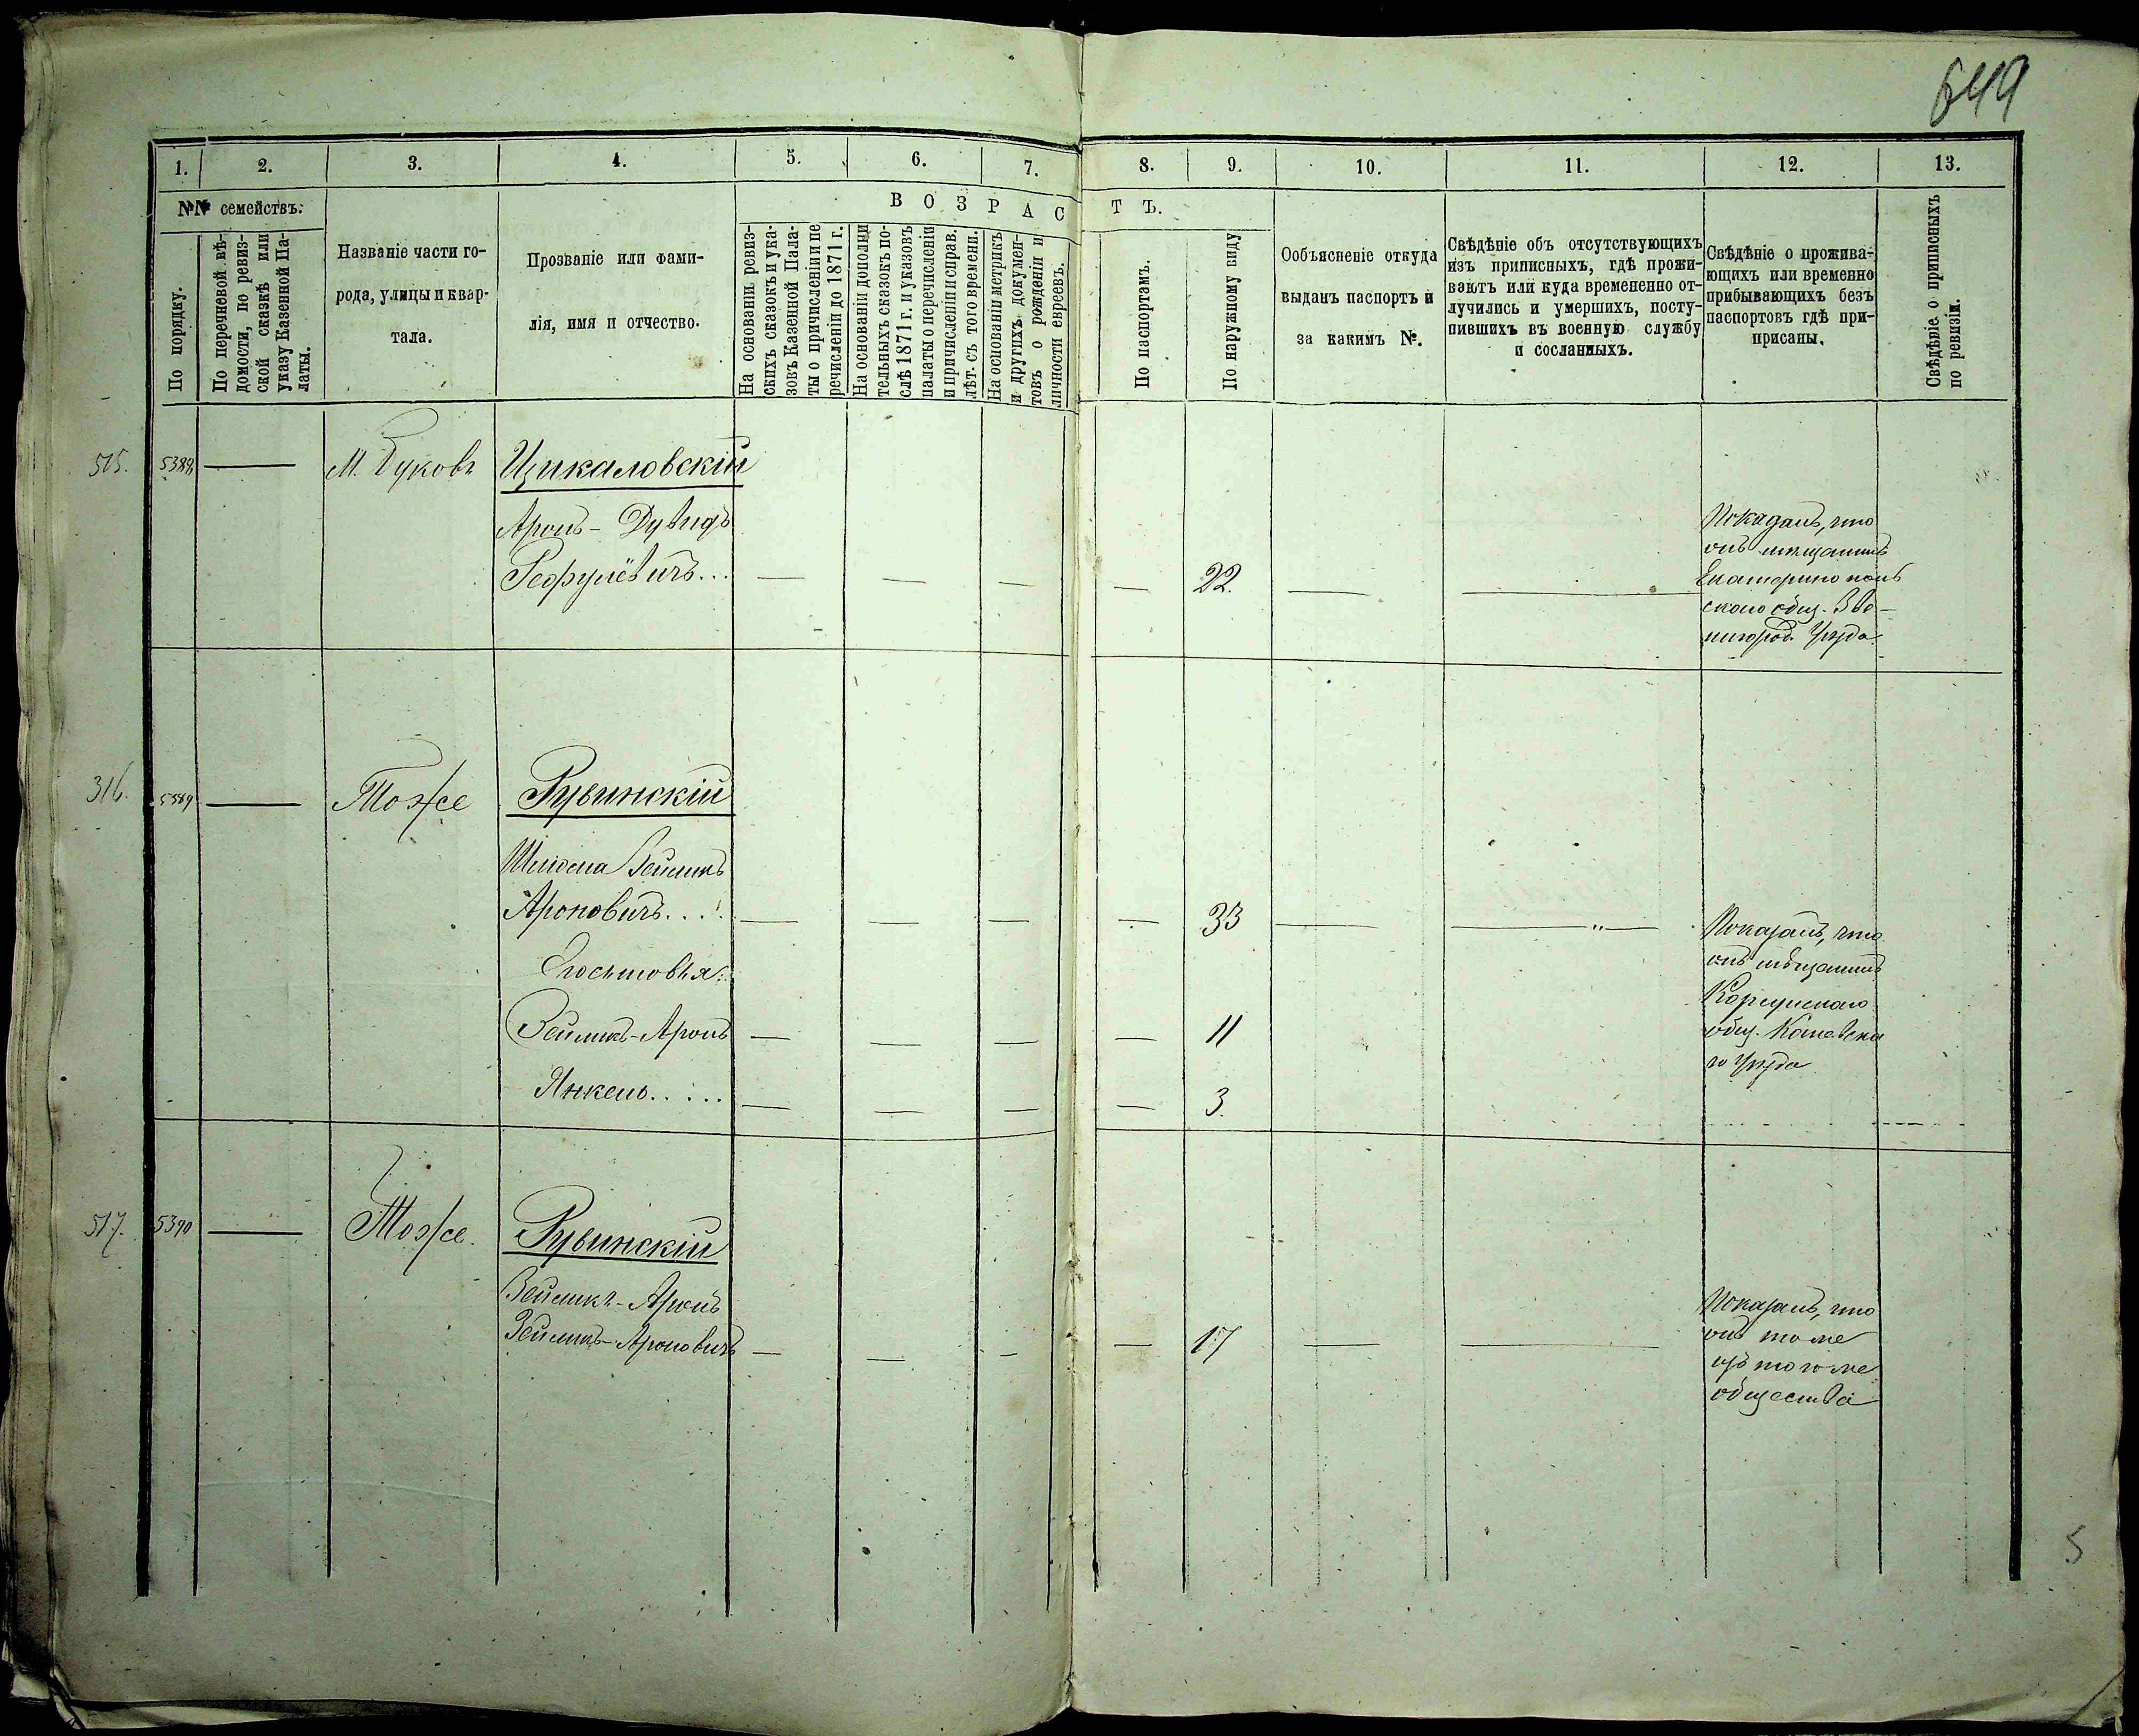 649
1. 2. 3. 4. 5. 6. 7. 8. 9. 10. 11. 12. 13.
№№ семействъ:
ВОЗРАСТЪ.
По порядку.
По перечневой вѣ-
домости, по ревиз-
ской сказкѣ или
указу Казенной Па-
латы.
Названіе части го-
рода, улицы и квар-
тала.
Прозваніе или фами-
лія, имя и отчество.
На основаніи ревиз-
скихъ сказокъ и ука-
зовъ Казенной Пала-
ты о причисленіи и пе
речисленіи до 1871 г.
На основаніи дополни
тельныхъ сказокъ по-
слѣ 1871 г. и указовъ
палаты о перечисленіи
и причисленіи и справ.
лѣт. съ того времени.
На основаніи метрикъ
и другихъ докумен-
товъ о рожденіи и
личности евреевъ.
По паспортамъ.
По наружному виду
Ообъясненіе откуда
выданъ паспортъ и
за какимъ №.
Свѣдѣніе объ отсутствующихъ
изъ приписныхъ, гдѣ прожи-
ваютъ или куда временено от-
лучились и умершихъ, посту-
пившихъ въ военную службу
и сосланныхъ.
Свѣдѣніе о прожива-
ющихъ или временно
прибывающихъ безъ
паспортовъ гдѣ при-
писаны.
Свѣдѣніе о приписныхъ
по ревизіи.
515. 5388 — М. Буковъ Цикаловскій
Аронъ-Дувидъ
— — — — 22. — —
Показалъ, что
онъ мѣщанинъ
Екатеринополь
скаго общ. Зве-
нигород. Уѣзда
316. 5389 — Тоже Рувинскій
Шлиома Зейликъ
Ароновичъ.... — — — — 33 — — " —
Показалъ, что
онъ мѣщанинъ
Корсунскаго
общ. Каневска
го Уѣзда
Его сыновья:
Зейликъ-Аронъ — — — — 11
Янкель..... — — — — 3.
517. 5390 — Тоже. Рувинскій
Зейликъ-Аронъ
Зейликъ-Ароновичъ — — — — 17 — —
Показалъ, что
онъ тоже
изъ того же
общества
5